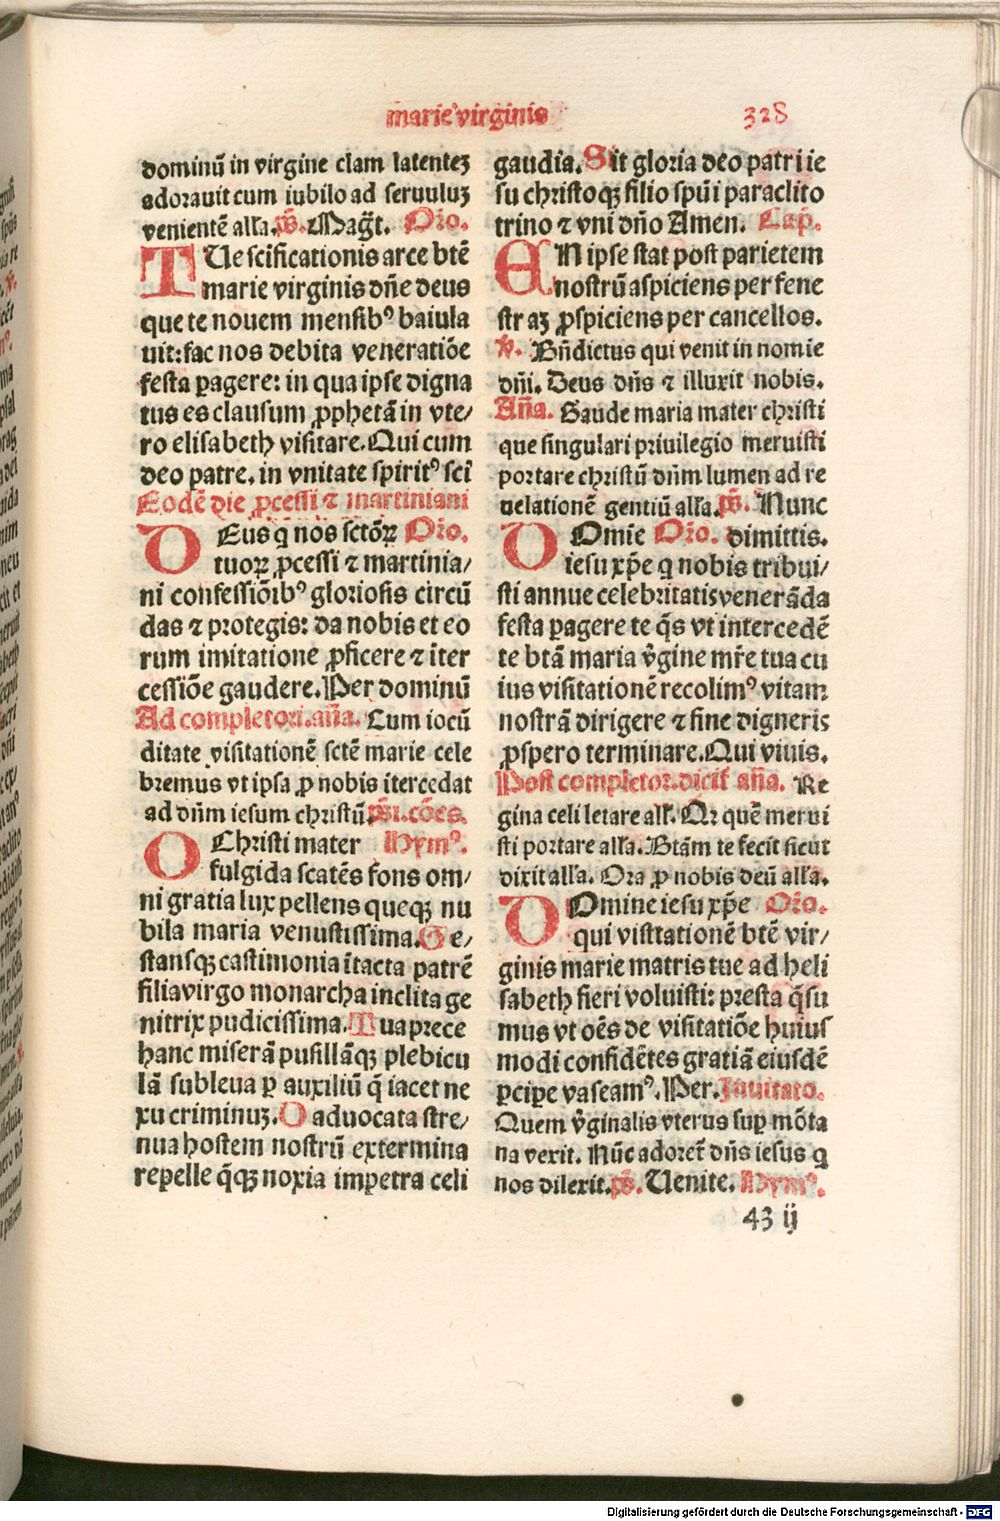 marie virginis 328
dominū in virgine clam latentez
adorauit cum iubilo ad seruuluz
venientē alľa. p̄s. Mag̃t. Or̄o.
TUe scificationis arce btē
marie virginis dn̄e deus
que te nouem mensibꝰ baiula
uit: fac nos debita veneratiōe
festa ꝑagere: in qua ipse digna
tus es clausum ꝓphetā in vte/
ro elisabeth visitare. Qui cum
deo patre. in vnitate spiritꝰ sci̅
Eodē die ꝓcessi ⁊ martiniani
DEus q nos sctōꝝ Or̄o.
tuoꝝ ꝓcessi ⁊ martinia/
ni confessiōibꝰ gloriosis circū
das ⁊ protegis: da nobis et eo
rum imitatione ꝓficere ⁊ iter
cessiōe gaudere. Per dominū
Ad completori. an̄a. Cum iocū
ditate visitationē sctē marie cele
bremus vt ipsa ꝓ nobis itercedat
ad dūm iesum christū. p̄s. cōes.
O Christi mater Hymꝰ.
fulgida scatēs fons om/
ni gratia lux pellens queqꝫ nu
bila maria venustissima. Ge/
stansqꝫ castimonia ītacta patrē
filia virgo monarcha inclita ge
nitrix pudicissima. Tua prece
hanc miserā pusillāqꝫ plebicu
lā subleua ꝑ auxiliū q̄ iacet ne
xu criminuz. O aduocata stre/
nua hostem nostrū extermina
repelle q̄qꝫ noxia impetra celi
gaudia. Sit gloria deo patri ie
su christoqꝫ filio spūi paraclito
trino ⁊ vni dn̄o Amen. Cap̄.
EN ipse stat post parietem
nostrū aspiciens per fene
straz ꝓspiciens per cancellos.
℣. Bn̄dictus qui venit in nomie
dn̄i. Deus dn̄s ⁊ illuxit nobis.
An̄a. Gaude maria mater christi
que singulari priuilegio meruisti
portare christū dūm lumen ad re
uelationē gentiū alľa. p̄s. Nunc
DOmie Or̄o. dimittis.
iesu xp̄e q nobis tribui/
sti annue celebritatis venerāda
festa ꝑagere te q̄s vt intercedē
te btā maria v̄gine mr̄e tua cu
ius visitationē recolimꝰ vitam
nostrā dirigere ⁊ fine digneris
ꝓspero terminare. Qui viuis.
Post completor. dicit̄ an̄a. Re
gina celi letare alľ. Qr quē merui
sti portare alľa. Btām te fecit sicut
dixit alľa. Ora ꝓ nobis deū alľa.
DOmine iesu xp̄e Or̄o.
qui visitationē btē vir/
ginis marie matris tue ad heli
sabeth fieri voluisti: presta q̄su
mus vt oēs de visitatiōe huius
modi confidētes gratiā eiusdē
ꝑcipe vaseamꝰ. Per. Inuitato.
Quem v̄ginalis vterus suꝑ mōta
na vexit. Nūc adoret̄ dn̄s iesus q
nos dilexit. p̄s. Uenite. Hymꝰ.
43 ij
Digitalisierung gefördert durch die Deutsche Forschungsgemeinschaft - DFG